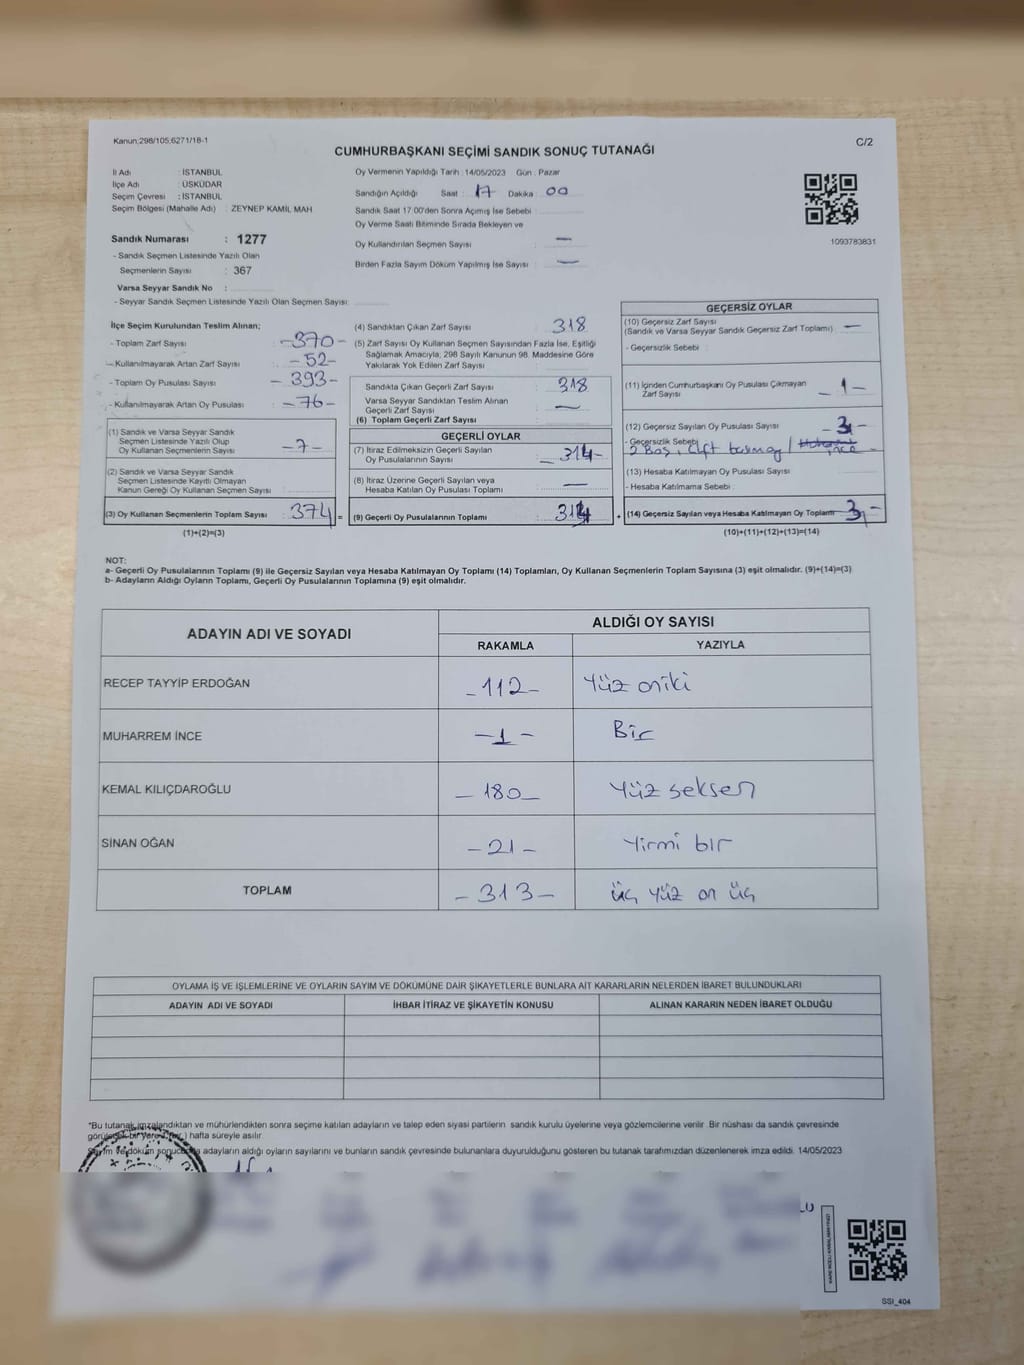 Kanun:298/105;6271/18-1
C/2
CUMHURBAŞKANI SEÇİMİ SANDIK SONUÇ TUTANAĞI
İl Adı : İSTANBUL
İlçe Adı : ÜSKÜDAR
Seçim Çevresi : İSTANBUL
Seçim Bölgesi (Mahalle Adı) : ZEYNEP KAMİL MAH
Sandık Numarası : 1277
- Sandık Seçmen Listesinde Yazılı Olan
Seçmenlerin Sayısı : 367
Varsa Seyyar Sandık No :
- Seyyar Sandık Seçmen Listesinde Yazılı Olan Seçmen Sayısı:
Oy Vermenin Yapıldığı Tarih : 14/05/2023 Gün : Pazar
Sandığın Açıldığı Saat : 17 Dakika : 00
Sandık Saat 17:00'den Sonra Açımış İse Sebebi :
Oy Verme Saati Bitiminde Sırada Bekleyen ve
Oy Kullandırılan Seçmen Sayısı : —
Birden Fazla Sayım Döküm Yapılmış İse Sayısı : —
1093783831
İlçe Seçim Kurulundan Teslim Alınan;
- Toplam Zarf Sayısı : -370-
- Kullanılmayarak Artan Zarf Sayısı : -52-
- Toplam Oy Pusulası Sayısı : -393-
- Kullanılmayarak Artan Oy Pusulası : -76-
(1) Sandık ve Varsa Seyyar Sandık
Seçmen Listesinde Yazılı Olup
Oy Kullanan Seçmenlerin Sayısı : -7-
(2) Sandık ve Varsa Seyyar Sandık
Seçmen Listesinde Kayıtlı Olmayan
Kanun Gereği Oy Kullanan Seçmen Sayısı :
(3) Oy Kullanan Seçmenlerin Toplam Sayısı : 374 =
(1)+(2)=(3)
(4) Sandıktan Çıkan Zarf Sayısı : 318
(5) Zarf Sayısı Oy Kullanan Seçmen Sayısından Fazla İse, Eşitliği
Sağlamak Amacıyla, 298 Sayılı Kanunun 98. Maddesine Göre
Yakılarak Yok Edilen Zarf Sayısı :
Sandıkta Çıkan Geçerli Zarf Sayısı : 318
Varsa Seyyar Sandıktan Teslim Alınan
Geçerli Zarf Sayısı : —
(6) Toplam Geçerli Zarf Sayısı :
GEÇERLİ OYLAR
(7) İtiraz Edilmeksizin Geçerli Sayılan
Oy Pusulalarının Sayısı : -314-
(8) İtiraz Üzerine Geçerli Sayılan veya
Hesaba Katılan Oy Pusulası Toplamı : —
(9) Geçerli Oy Pusulalarının Toplamı : 314 +
GEÇERSİZ OYLAR
(10) Geçersiz Zarf Sayısı
(Sandık ve Varsa Seyyar Sandık Geçersiz Zarf Toplamı) : —
- Geçersizlik Sebebi :
(11) İçinden Cumhurbaşkanı Oy Pusulası Çıkmayan
Zarf Sayısı : -1-
(12) Geçersiz Sayılan Oy Pusulası Sayısı : -3-
- Geçersizlik Sebebi :
2 Boş, Çift
(13) Hesaba Katılmayan Oy Pusulası Sayısı :
- Hesaba Katılmama Sebebi :
(14) Geçersiz Sayılan veya Hesaba Katılmayan Oy Toplamı : 3 -
(10)+(11)+(12)+(13)=(14)
NOT:
a- Geçerli Oy Pusulalarının Toplamı (9) ile Geçersiz Sayılan veya Hesaba Katılmayan Oy Toplamı (14) Toplamları, Oy Kullanan Seçmenlerin Toplam Sayısına (3) eşit olmalıdır. (9)+(14)=(3)
b- Adayların Aldığı Oyların Toplamı, Geçerli Oy Pusulalarının Toplamına (9) eşit olmalıdır.
ADAYIN ADI VE SOYADI
ALDIĞI OY SAYISI
RAKAMLA YAZIYLA
RECEP TAYYİP ERDOĞAN -112- Yüz oniki
MUHARREM İNCE -1- Bir
KEMAL KILIÇDAROĞLU -180- Yüz seksen
SİNAN OĞAN -21- Yirmi bir
TOPLAM -313- üç yüz on üç
OYLAMA İŞ VE İŞLEMLERİNE VE OYLARIN SAYIM VE DÖKÜMÜNE DAİR ŞİKAYETLERLE BUNLARA AİT KARARLARIN NELERDEN İBARET BULUNDUKLARI
ADAYIN ADI VE SOYADI İHBAR İTİRAZ VE ŞİKAYETİN KONUSU ALINAN KARARIN NEDEN İBARET OLDUĞU
*Bu tutanak imzalandıktan ve mühürlendikten sonra seçime katılan adayların ve talep eden siyasi partilerin sandık kurulu üyelerine veya gözlemcilerine verilir. Bir nüshası da sandık çevresinde
hafta süreyle asılır.
Sayım ve döküm sonucunda adayların aldığı oyların sayılarını ve bunların sandık çevresinde bulunanlara duyurulduğunu gösteren bu tutanak tarafımızdan düzenlenerek imza edildi. 14/05/2023
SSI_404